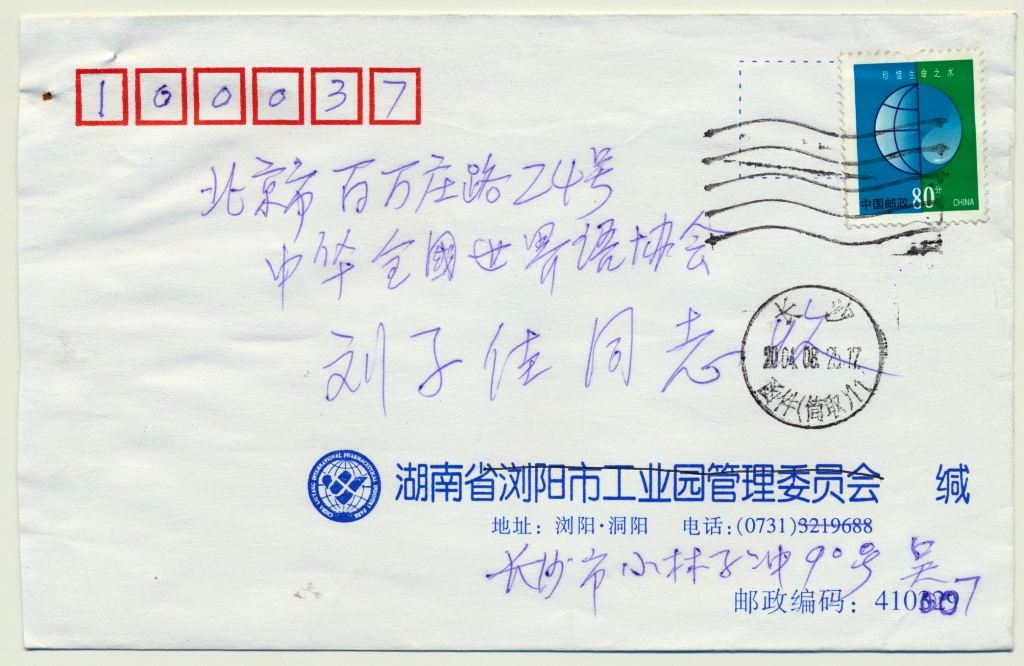 100037
珍惜生命之水
中国邮政 80分 CHINA
北京市百万庄路24号
中华全國世界语协会
刘子佳同志收
长沙
2004.08.25.17
函件(筒取)11
湖南省浏阳市工业园管理委员会 缄
地址：浏阳·洞阳 电话：(0731)3219688
长沙市小林子冲90号 吴
邮政编码：410007